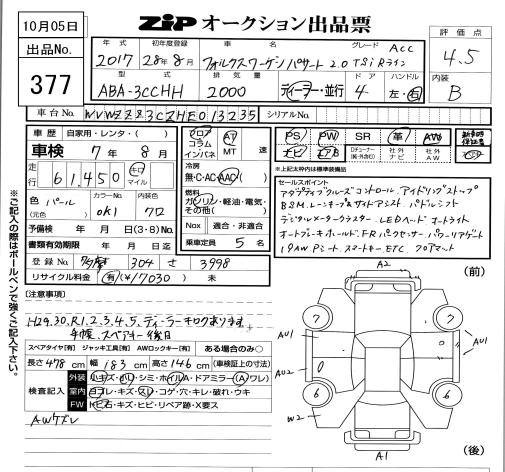 10月05日
ZIP オークション出品票
出品No.
377
評価点
4.5
内装
B
年式 初年度登録 車名 グレード
2017 28年8月 フォルクスワーゲン パサート 2.0 TSi Rライン Acc
型式 排気量 ドア ハンドル
ABA-3CCHH 2000 ディーラー・並行 4 左・右
車台No. WVWZZZ3CZHE013235 シリアルNo.
車歴 自家用・レンタ( )
車検 7年 8月
走行 61,450 キロ マイル
色 パール カラーNo. 0k1 内装色 クロ
(元色)
予備検付 年 月 日 (3・8) No.
書類有効期限 年 月 日迄
登録No. 304 さ 3998
リサイクル料金 有(¥17030) 未
フロア コラム インパネ AT MT 速
冷房 無・C・AC・AAC
燃料 ガソリン・軽油・電気・その他( )
Nox 適合・非適合
乗車定員 5 名
PS PW SR 革 AW
ナビ エアB Dチューナー 社外ナビ 社外AW
新車時保証書
※上記太枠は標準装備品
セールスポイント
アダプティブクルーズコントロール アイドリングストップ
BSM レーンキープ&サイドアシスト パドルシフト
デジタルメータークラスター LEDヘッド オートライト
オートブレーキホールド FRパークセンサー パワーリアゲート
19AW Pシート スマートキー ETC フロアマット
[注意事項]
H29.30.R1.2.3.4.5. ディーラーキロクあります。
手帳、スペアキー後日
スペアタイヤ[有] ジャッキ工具[有] AWロックキー[有] ある場合のみ○
長さ 478 cm 幅 183 cm 高さ 146 cm (車検証の寸法)
検査記入
外装 小キズ・ヘコ・シミ・ホイルA・ドアミラー(A)ワレ)
室内 ヨゴレ・キズ・スレ・コゲ・穴・キレ・破れ・ウキ
FW トビ石・キズ・ヒビ・リペア跡・X要ス
AWケズレ
※ご記入の際はボールペンで強くご記入下さい。
A2
(前)
7
7
AU1
AU1
AU2
6
6
W2
A1
(後)